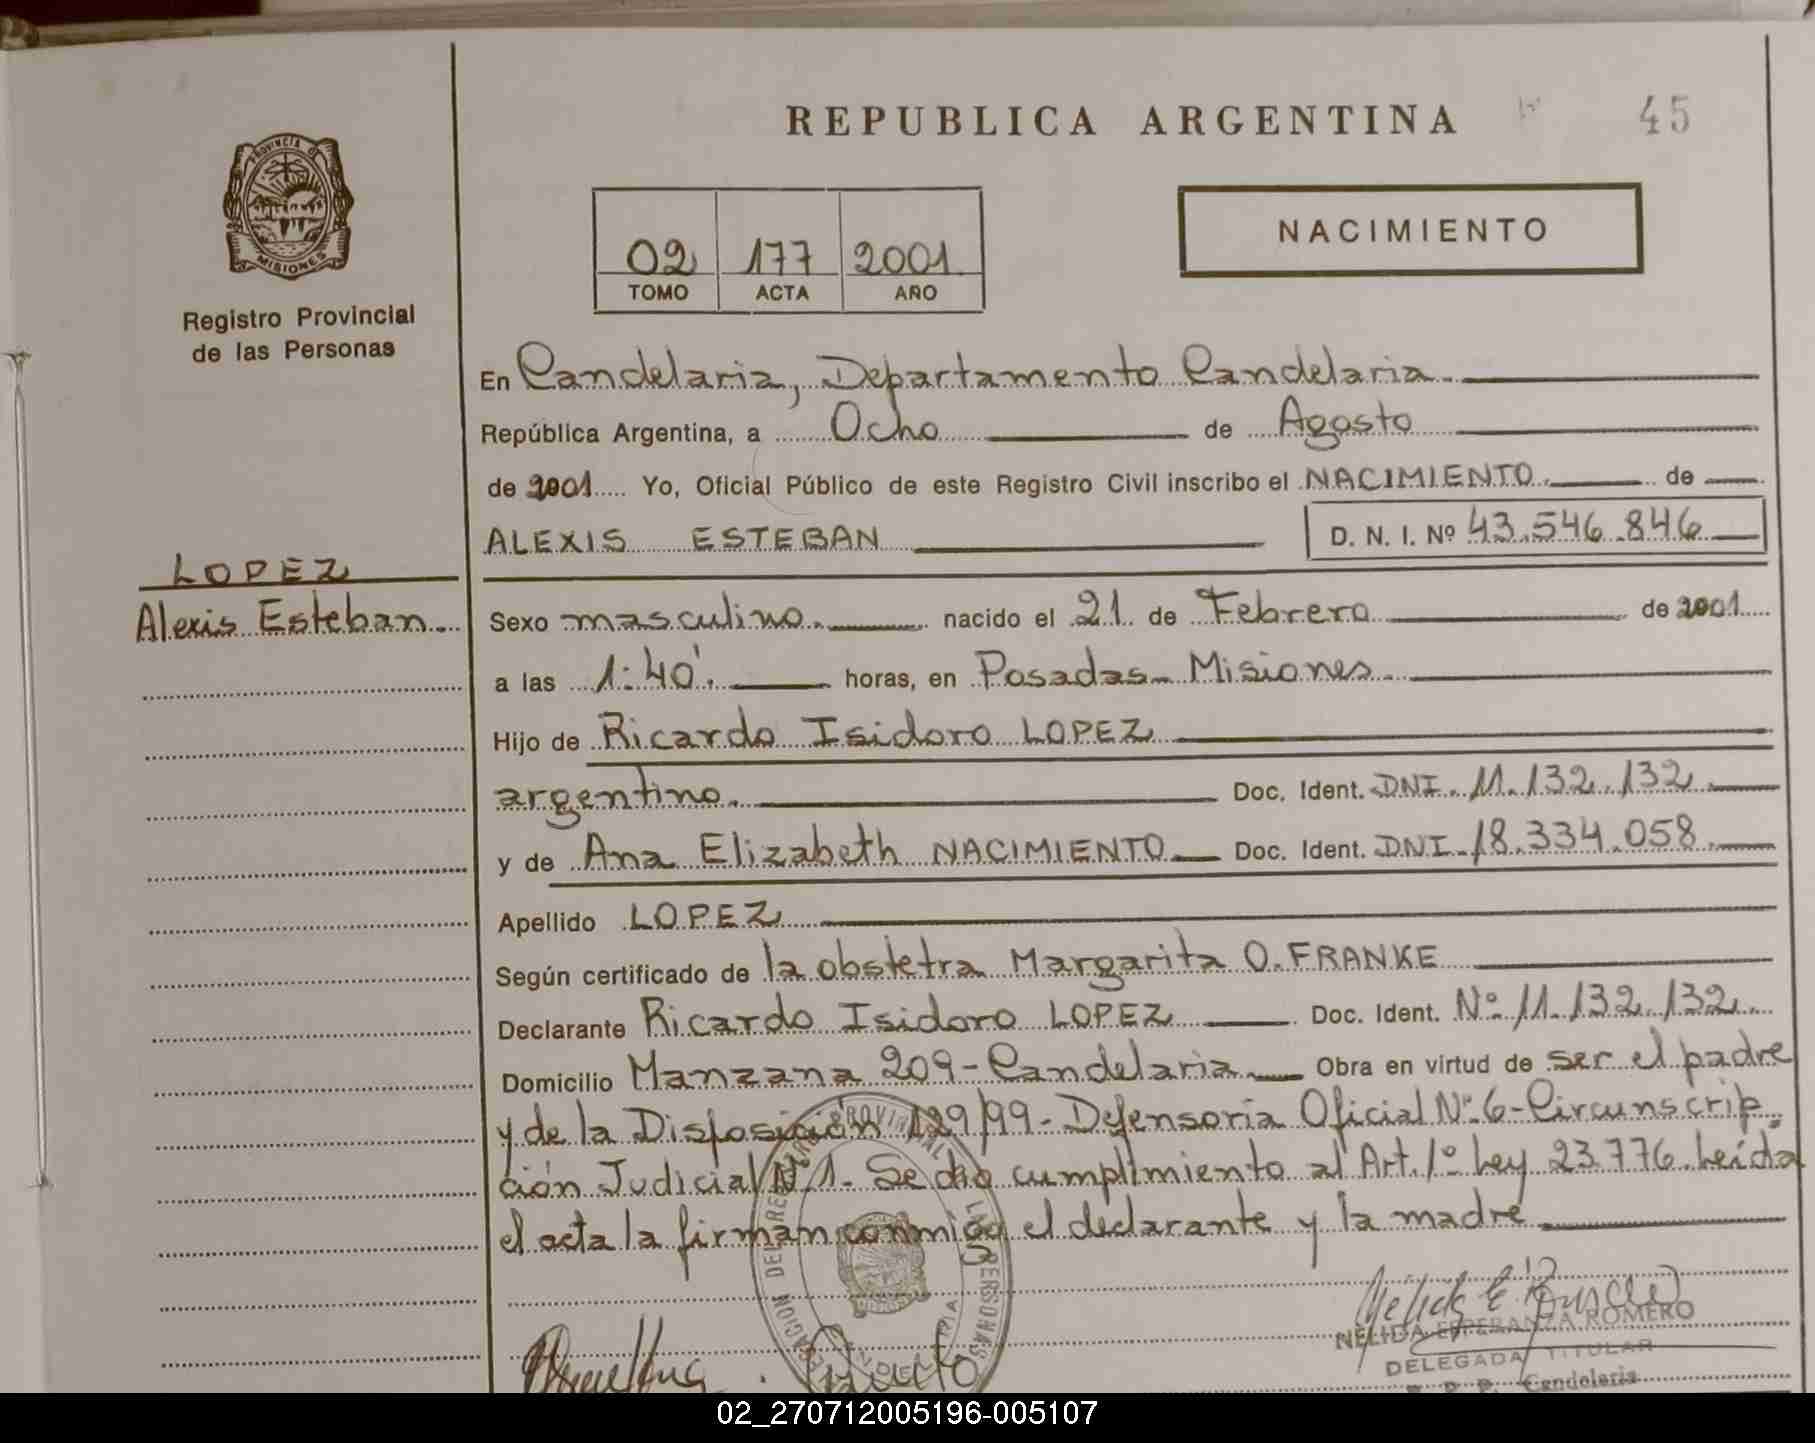 REPUBLICA ARGENTINA
45
PROVINCIA DE
MISIONES
Registro Provincial
de las Personas
02 177 2001
TOMO ACTA AÑO
NACIMIENTO
En Candelaria, Departamento Candelaria.
República Argentina, a Ocho de Agosto
de 2001 Yo, Oficial Público de este Registro Civil inscribo el NACIMIENTO. de
ALEXIS ESTEBAN D. N. I. Nº 43.546.846
LOPEZ
Alexis Esteban.
Sexo masculino. nacido el 21 de Febrero de 2001
a las 1:40'. horas, en Posadas- Misiones.
Hijo de Ricardo Isidoro LOPEZ
argentino. Doc. Ident. DNI. 11.132.132.
y de Ana Elizabeth NACIMIENTO Doc. Ident. DNI. 18.334.058.
Apellido LOPEZ
Según certificado de la obstetra Margarita O. FRANKE
Declarante Ricardo Isidoro LOPEZ Doc. Ident. Nº 11.132.132.
Domicilio Manzana 209-Candelaria. Obra en virtud de ser el padre
y de la Disposición 129/99- Defensoria Oficial Nº 6-Circunscrip-
ción Judicial N 1- Se dio cumplimiento al Art. 1º Ley 23.776. Leída
el acta la firman conmigo el declarante y la madre.
NELIDA ESPERANZA ROMERO
DELEGADA TITULAR
Candelaria
02_270712005196-005107